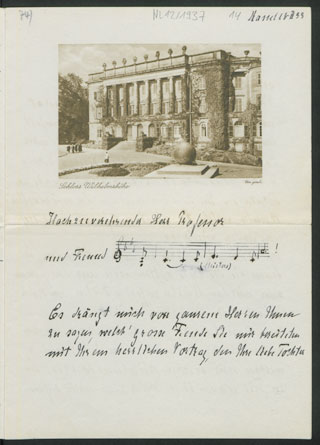 74) NL 12/1937 14 Kassel
Schloss Wilhelmshöhe
Hochzuverehrender Herr Professor
und Freund !
Es drängt mich von ganzem Herzen Ihnen
zu sagen, welch' grosse Freude Sie mir bereiteten
mit Ihrem herrlichen Vortrag, den Ihre Tochter